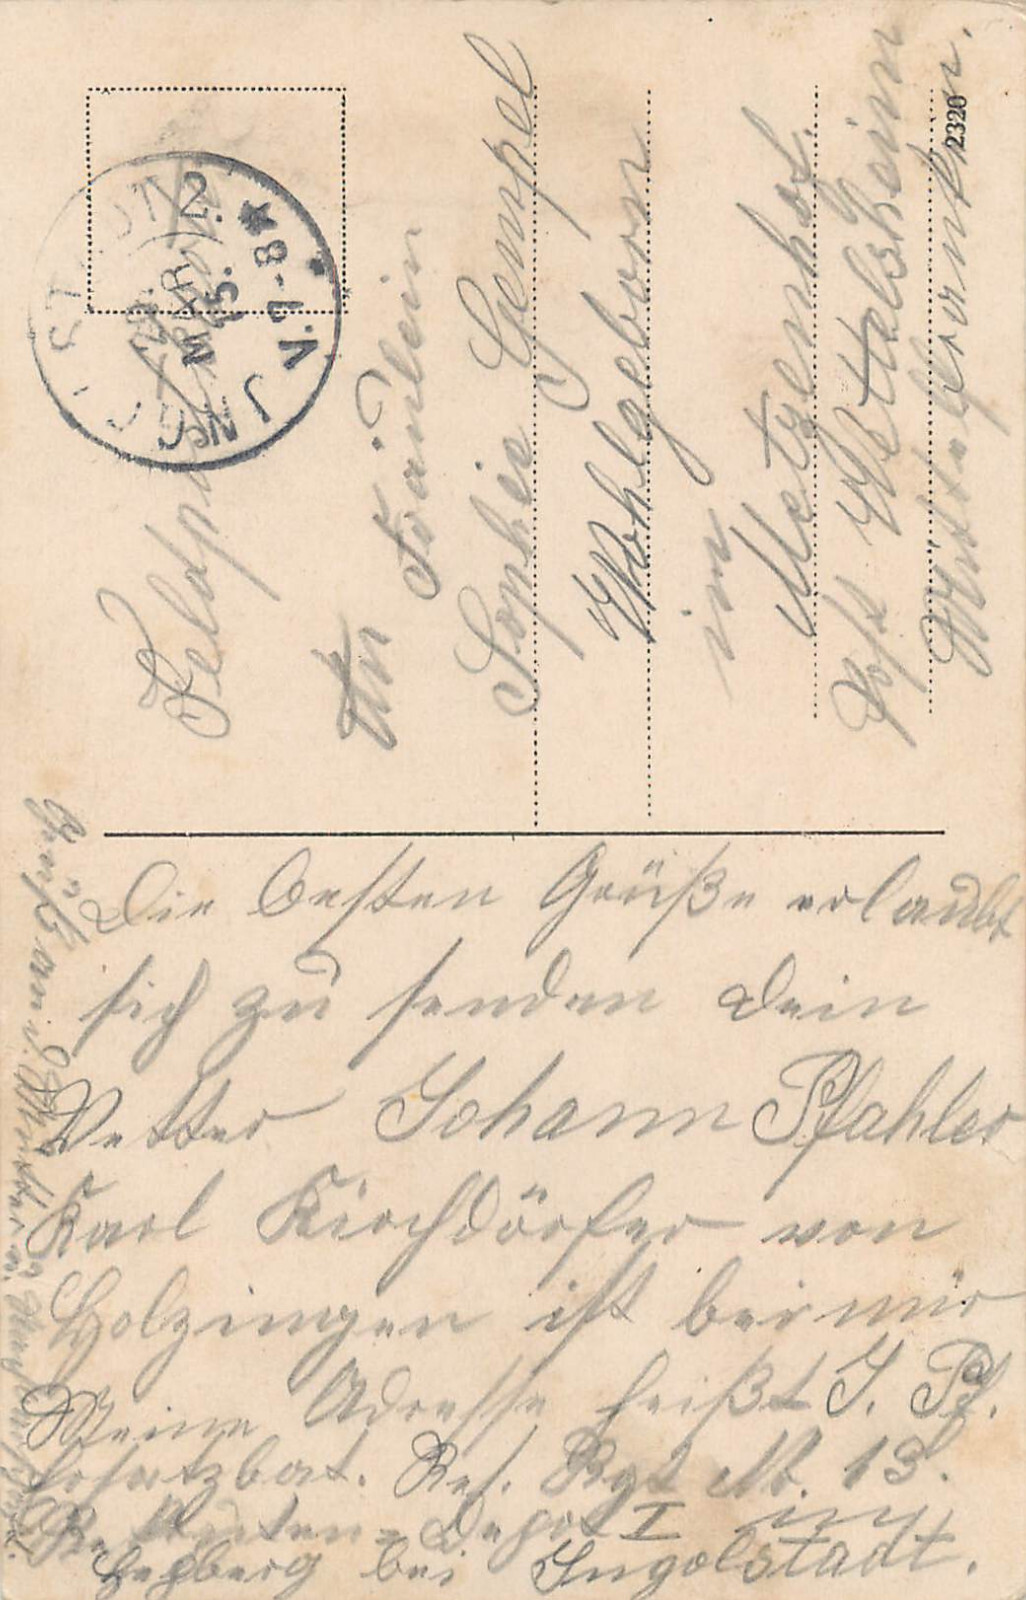 Feldpost
An
Fräulein
Sophie Gempel
Wohlgeboren
in
Metzenhof.
Post Wettelsheim
Mittelfranken.
2320
INGOLSTADT
2.
MAR
15.
V. 7-8
Die besten Grüße erlaubt
sich zu senden Dein
Vetter Johann Pfahler
Karl Kirchdörfer von
Holzingen ist bei mir
Meine Adresse heißt J. Pf.
Ersatzbat. Res. Rgt No. 13.
Rekruten-Depot I in
Hepberg bei Ingolstadt.
Gruß an d. Mutter u.